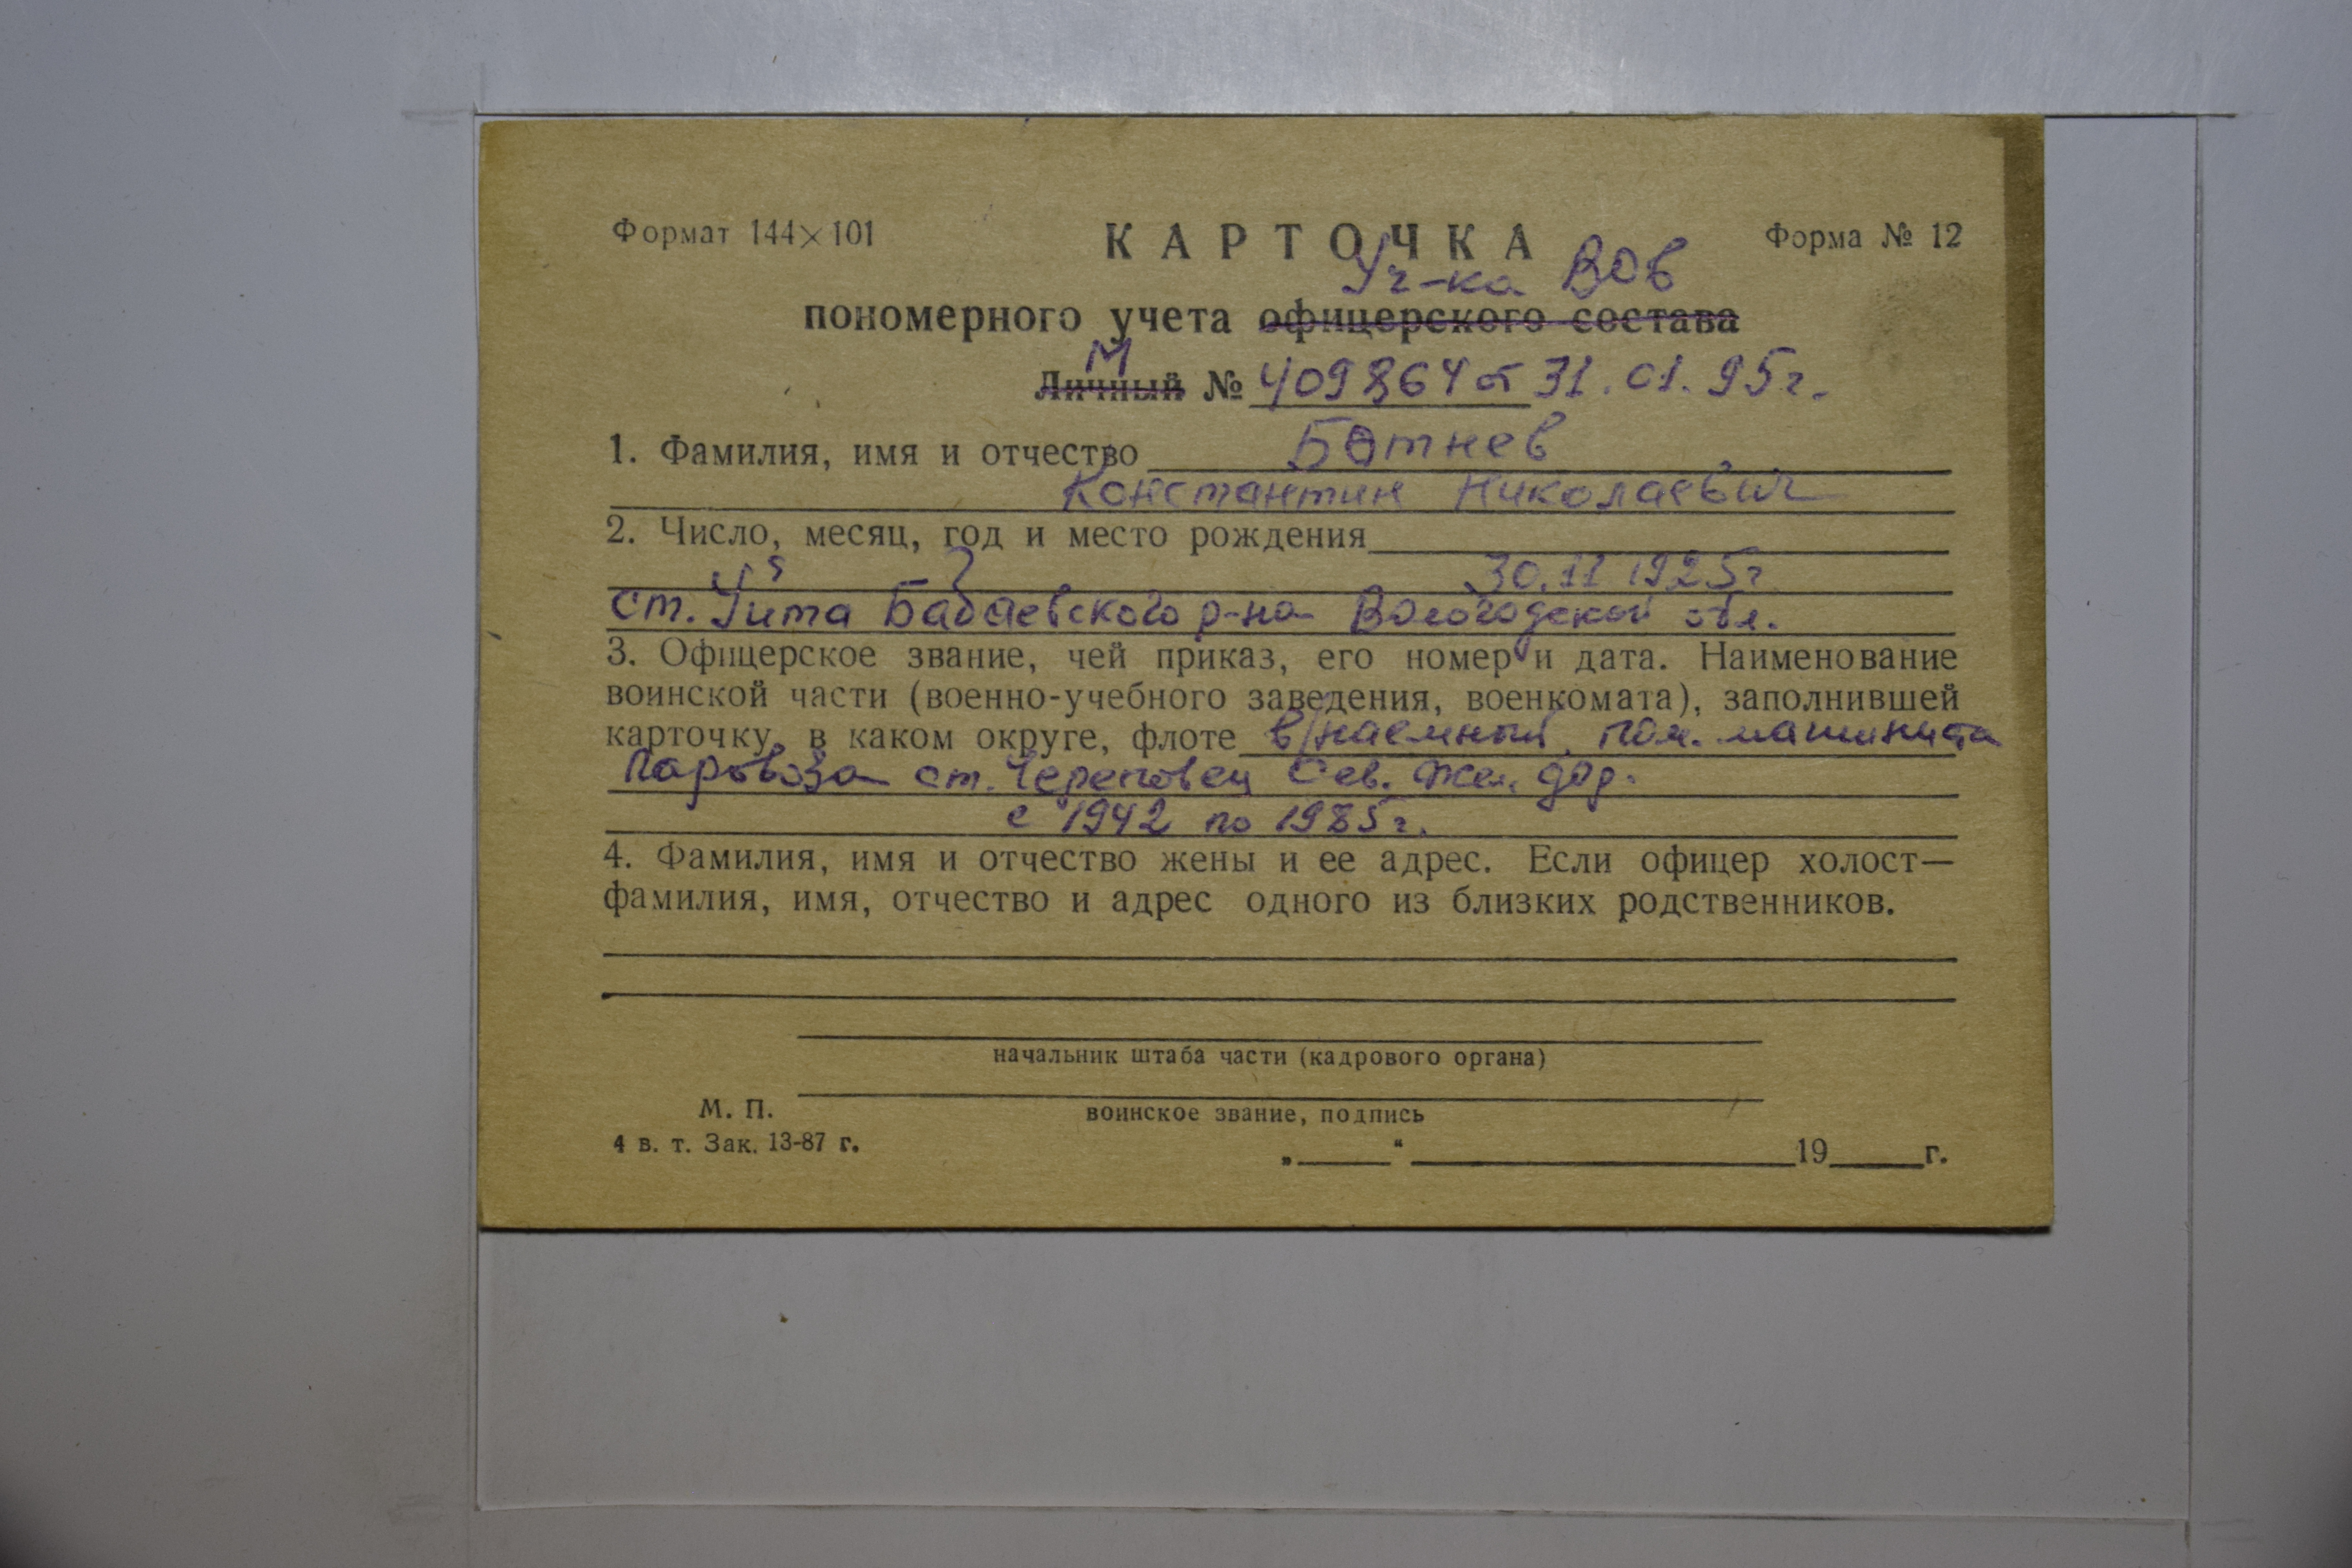 Формат 144×101 КАРТОЧКА Форма № 12
Уч-ка ВОв
пономерного учета офицерского состава
М
Личный № 409864 от 31.01.95г.
1. Фамилия, имя и отчество Ботнев
Константин Николаевич
2. Число, месяц, год и место рождения
30.11 1925г
ст. Уйта Бабаевского р-на Вологодской обл.
3. Офицерское звание, чей приказ, его номер и дата. Наименование
воинской части (военно-учебного заведения, военкомата), заполнившей
карточку, в каком округе, флоте в/наемный, пом. машиниста
паровоза ст. Череповец Сев. жел. дор.
с 1942 по 1985г.
4. Фамилия, имя и отчество жены и ее адрес. Если офицер холост—
фамилия, имя, отчество и адрес одного из близких родственников.
начальник штаба части (кадрового органа)
М. П.
воинское звание, подпись
4 в. т. Зак. 13-87 г.
„ “ 19 г.